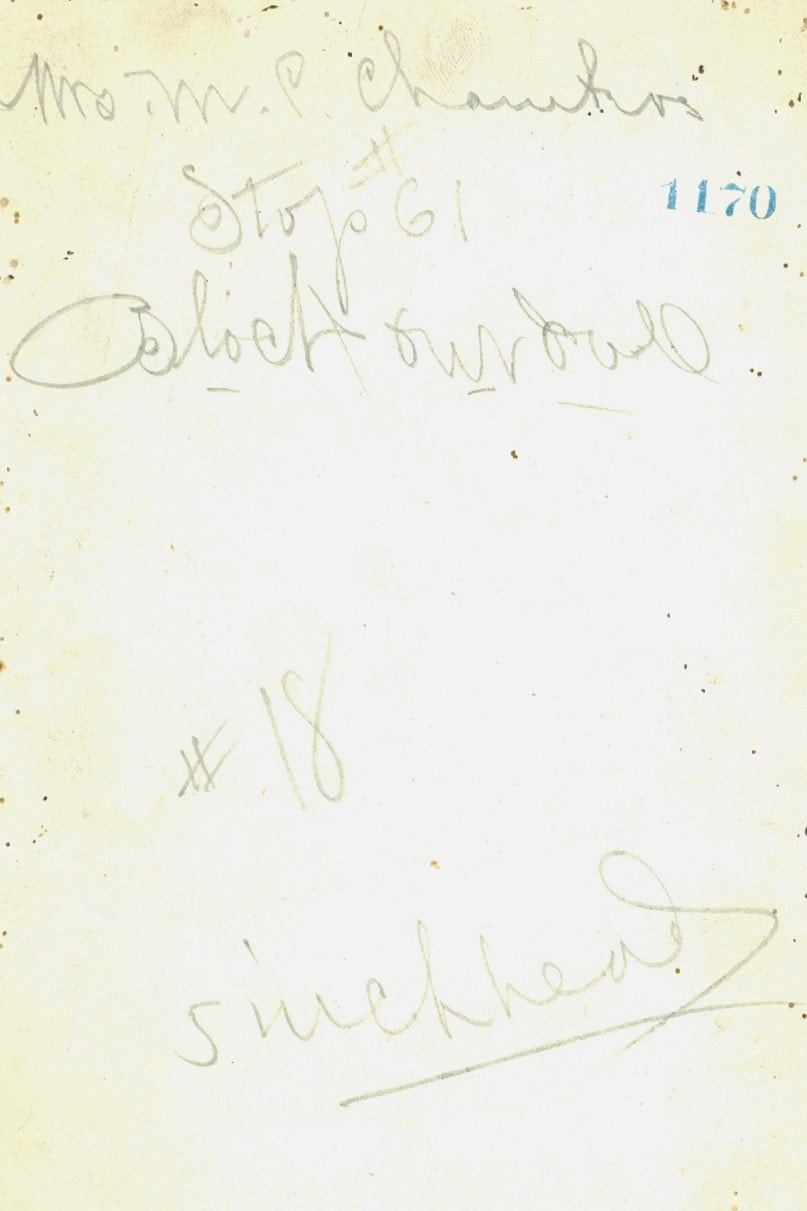 Mrs. M. P. Chambers
Stop #61
1170
Block out oval
#18
5 inch head